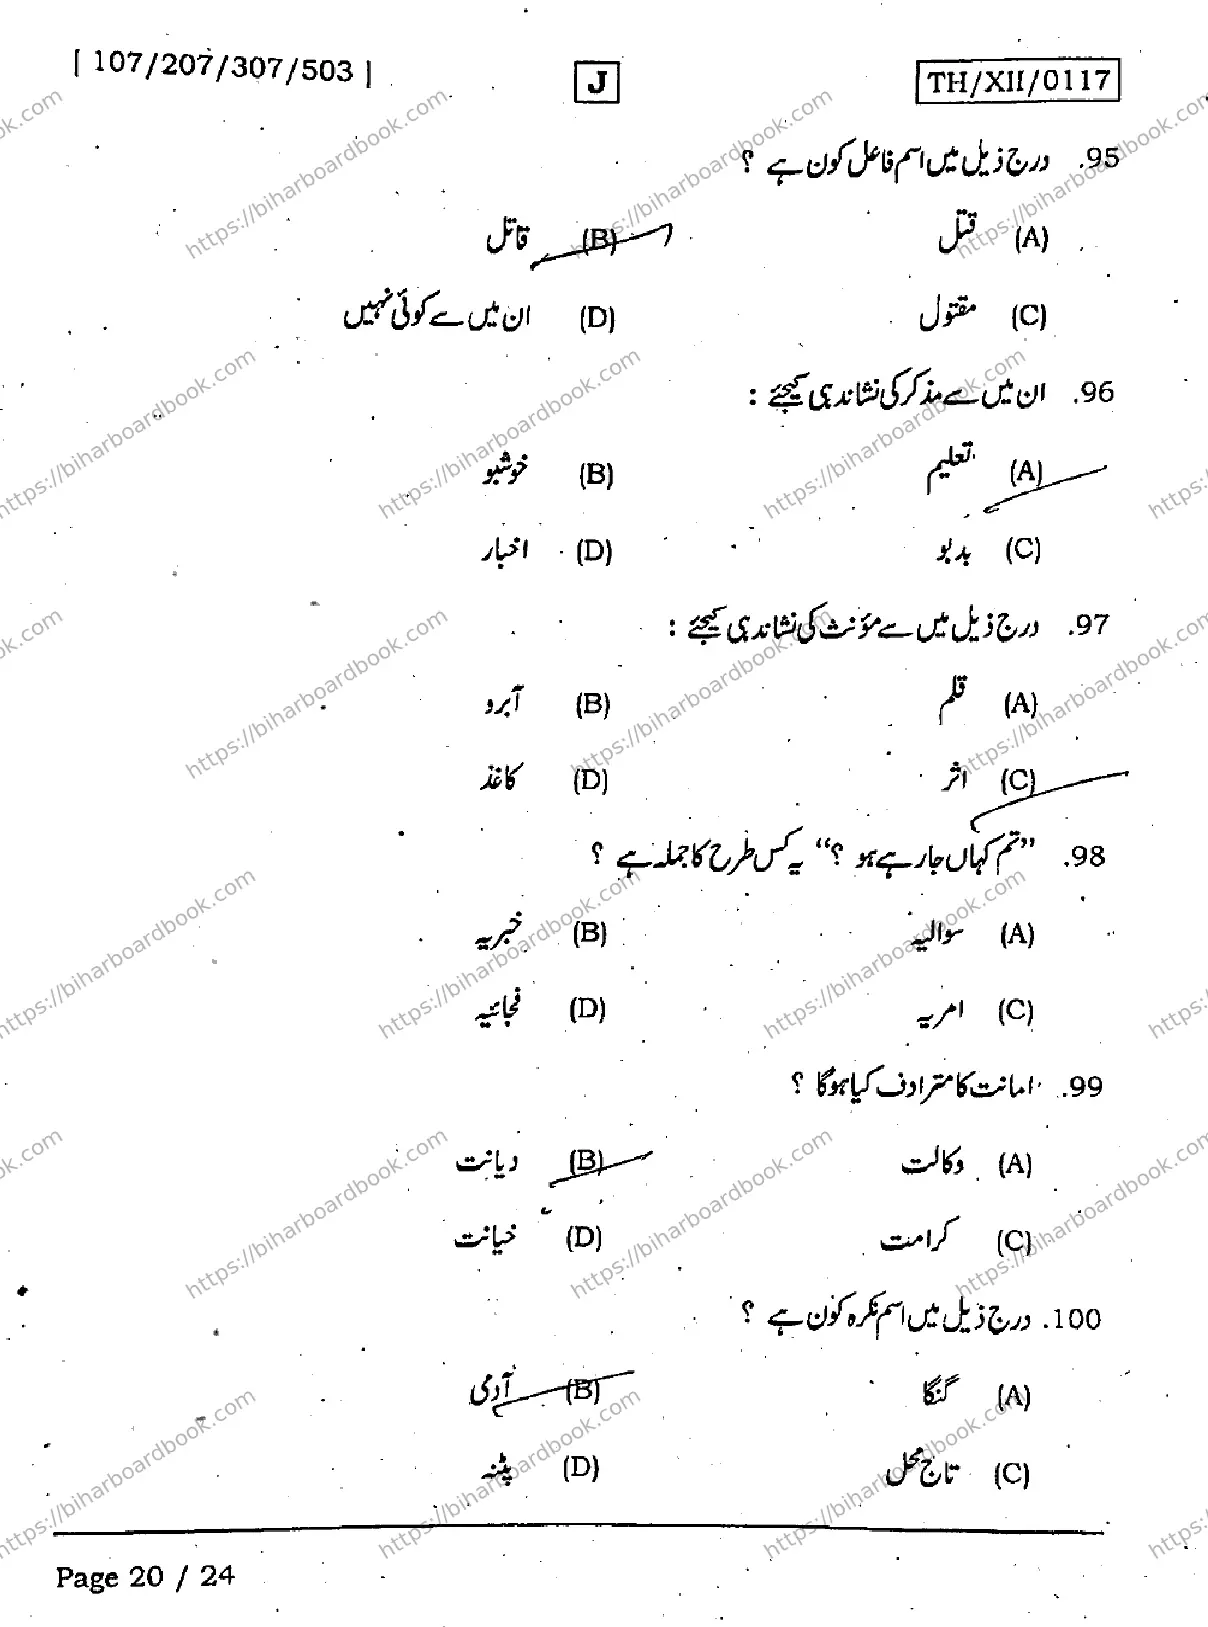 [ 107/207/307/503 ]
J
TH/XII/0117
95. درج ذیل میں اسم فاعل کون ہے ؟
(A) قتل (B) قاتل
(C) مقتول (D) ان میں سے کوئی نہیں
96. ان میں سے مذکر کی نشاندہی کیجئے :
(A) تعلیم (B) خوشبو
(C) بدبو (D) اخبار
97. درج ذیل میں سے مؤنث کی نشاندہی کیجئے :
(A) قلم (B) آبرو
(C) اثر (D) کاغذ
98. ”تم کہاں جا رہے ہو ؟“ یہ کس طرح کا جملہ ہے ؟
(A) سوالیہ (B) خبریہ
(C) امریہ (D) فجائیہ
99. امانت کا مترادف کیا ہوگا ؟
(A) وکالت (B) دیانت
(C) کرامت (D) خیانت
100. درج ذیل میں اسم نکرہ کون ہے ؟
(A) گنگا (B) آدمی
(C) تاج محل (D) پٹنہ
Page 20 / 24
https://biharboardbook.com